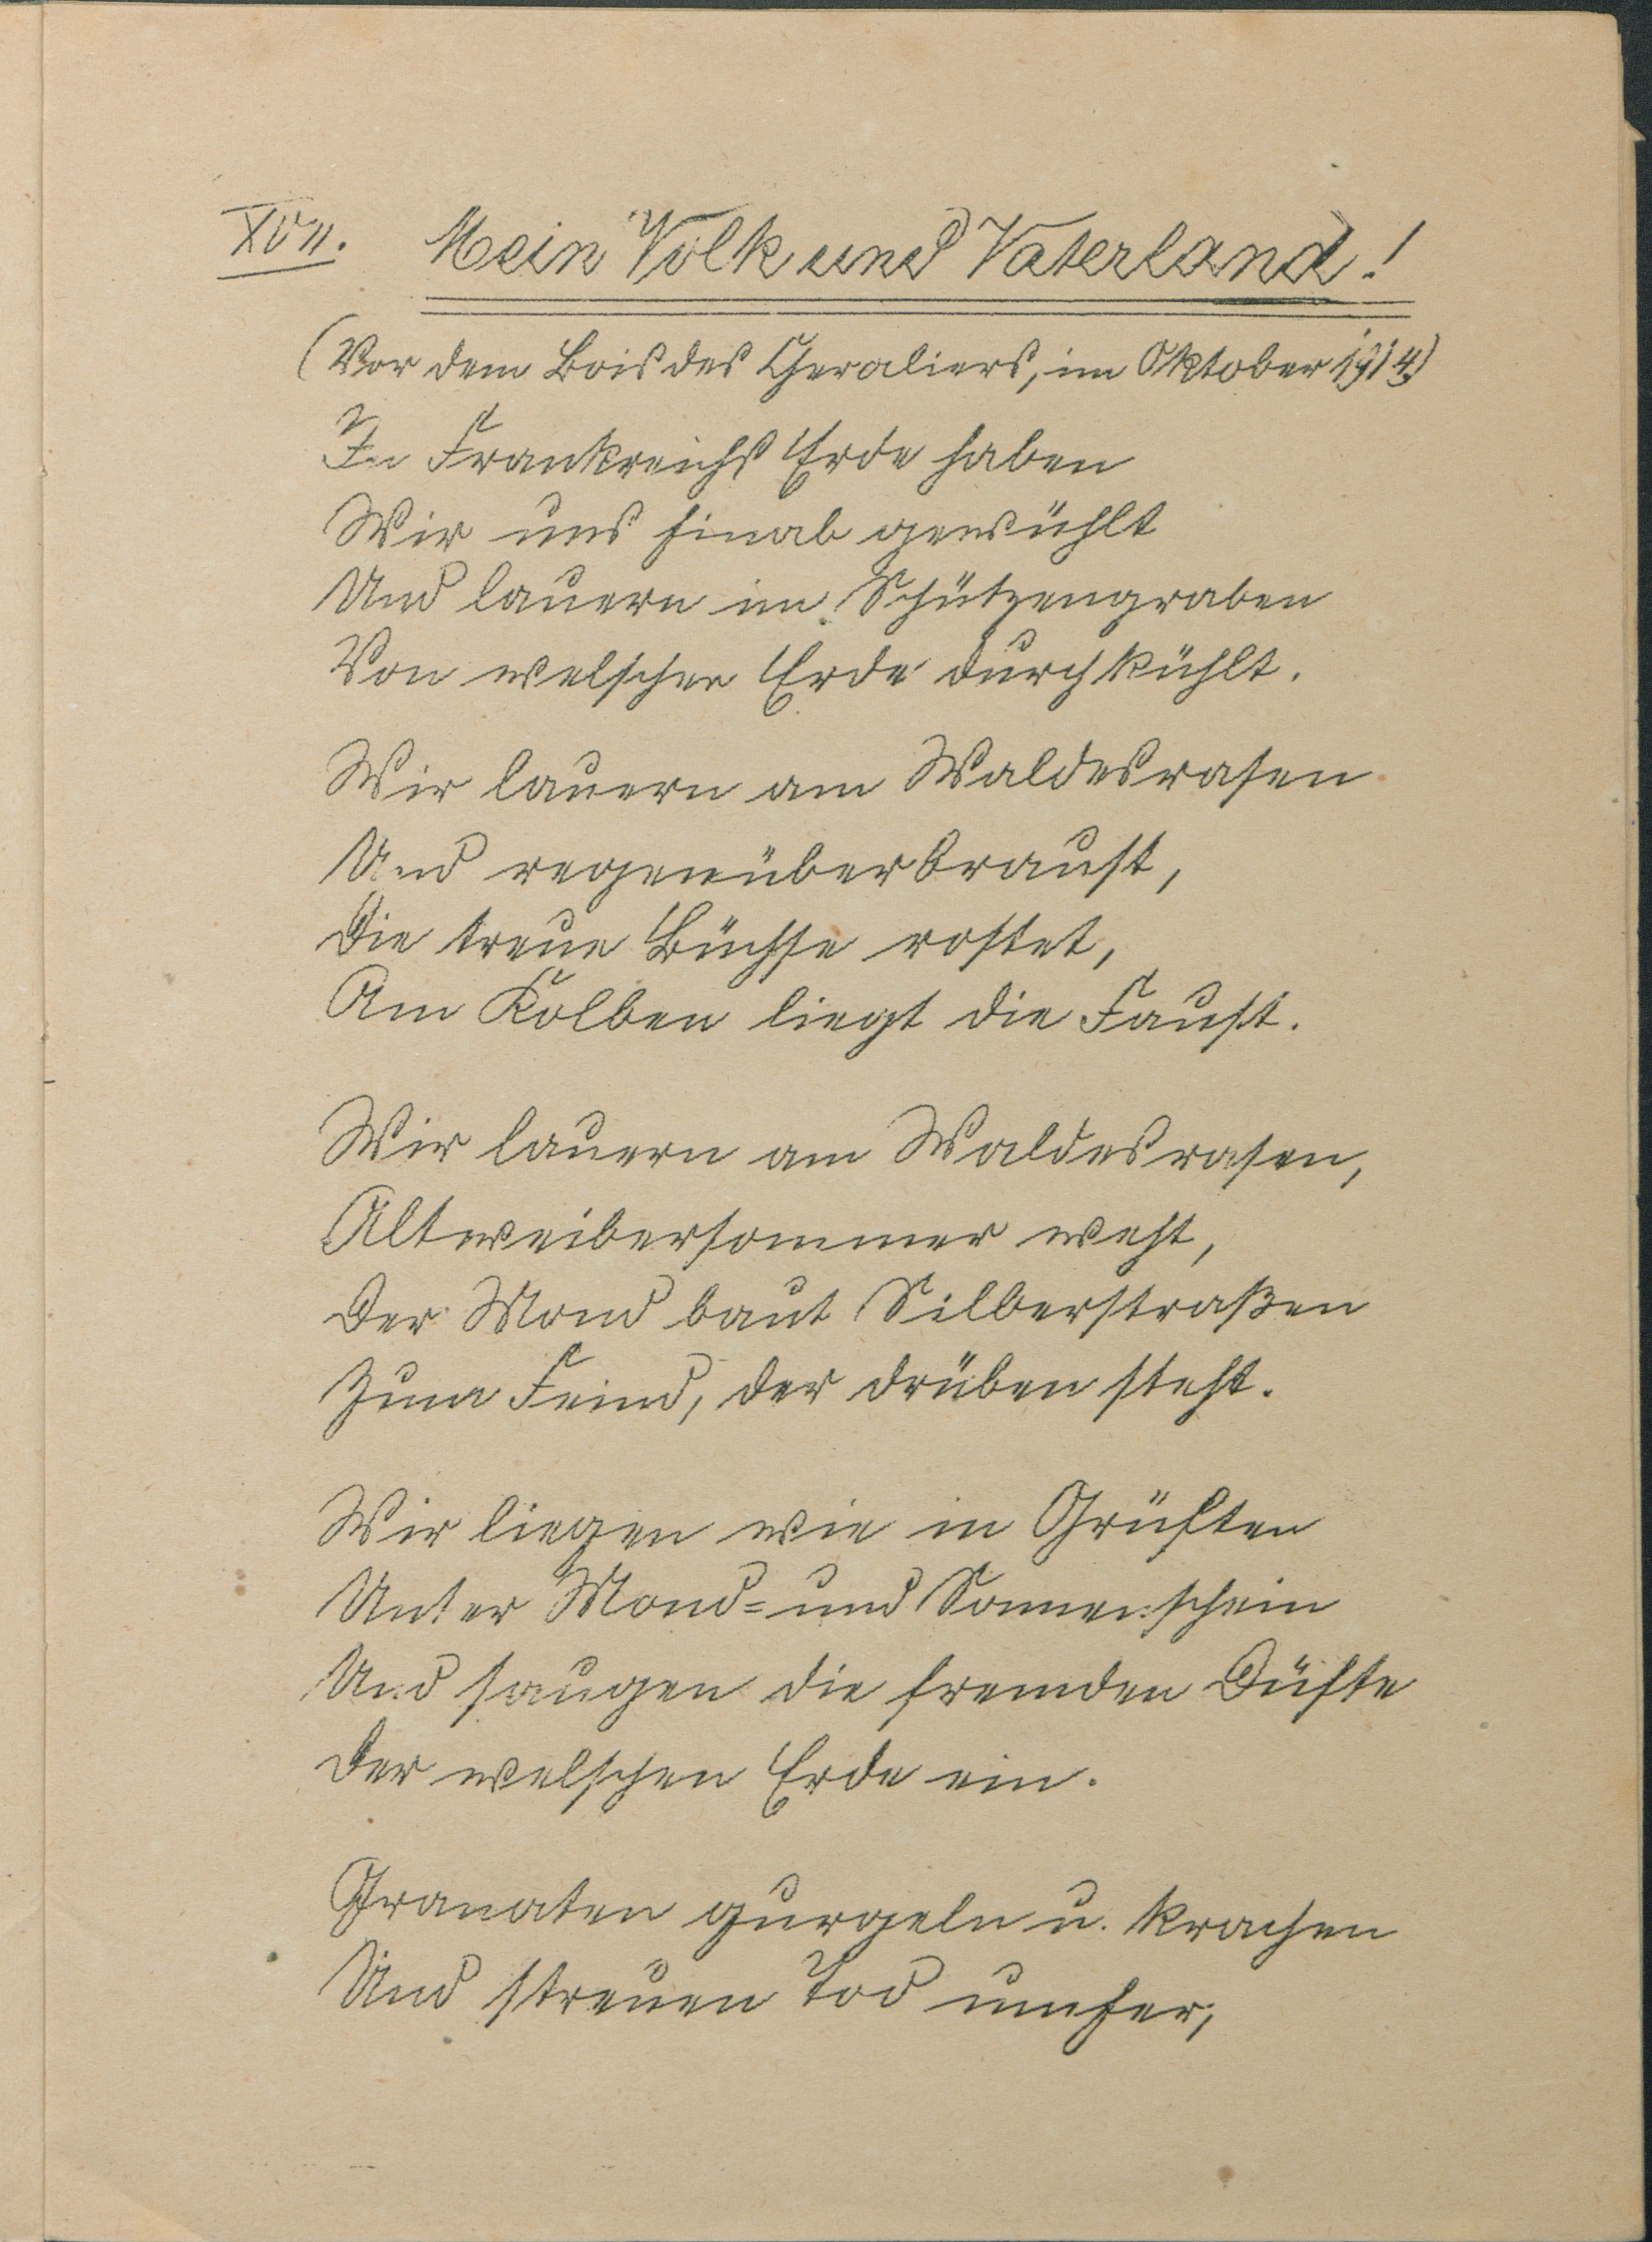 XVII. Mein Volk und Vaterland!
(Vor dem Bois des Chevaliers, im Oktober 1914)
In Frankreichs Erde haben
Wir uns hinab gewühlt
Und lauern im Schützengraben
Von welscher Erde durchkühlt.
Wir lauern am Waldesrasen
Und regenüberbraust,
Die treue Büchse rostet,
Am Kolben liegt die Faust.
Wir lauern am Waldesrasen,
Altweibersommer weht,
Der Mond baut Silberstraßen
Zum Feind, der drüben steht.
Wir liegen wie in Grüften
Unter Mond= und Sonnenschein
Und saugen die fremden Düfte
Der welschen Erde ein.
Granaten gurgeln u. krachen
Und streuen Tod umher,